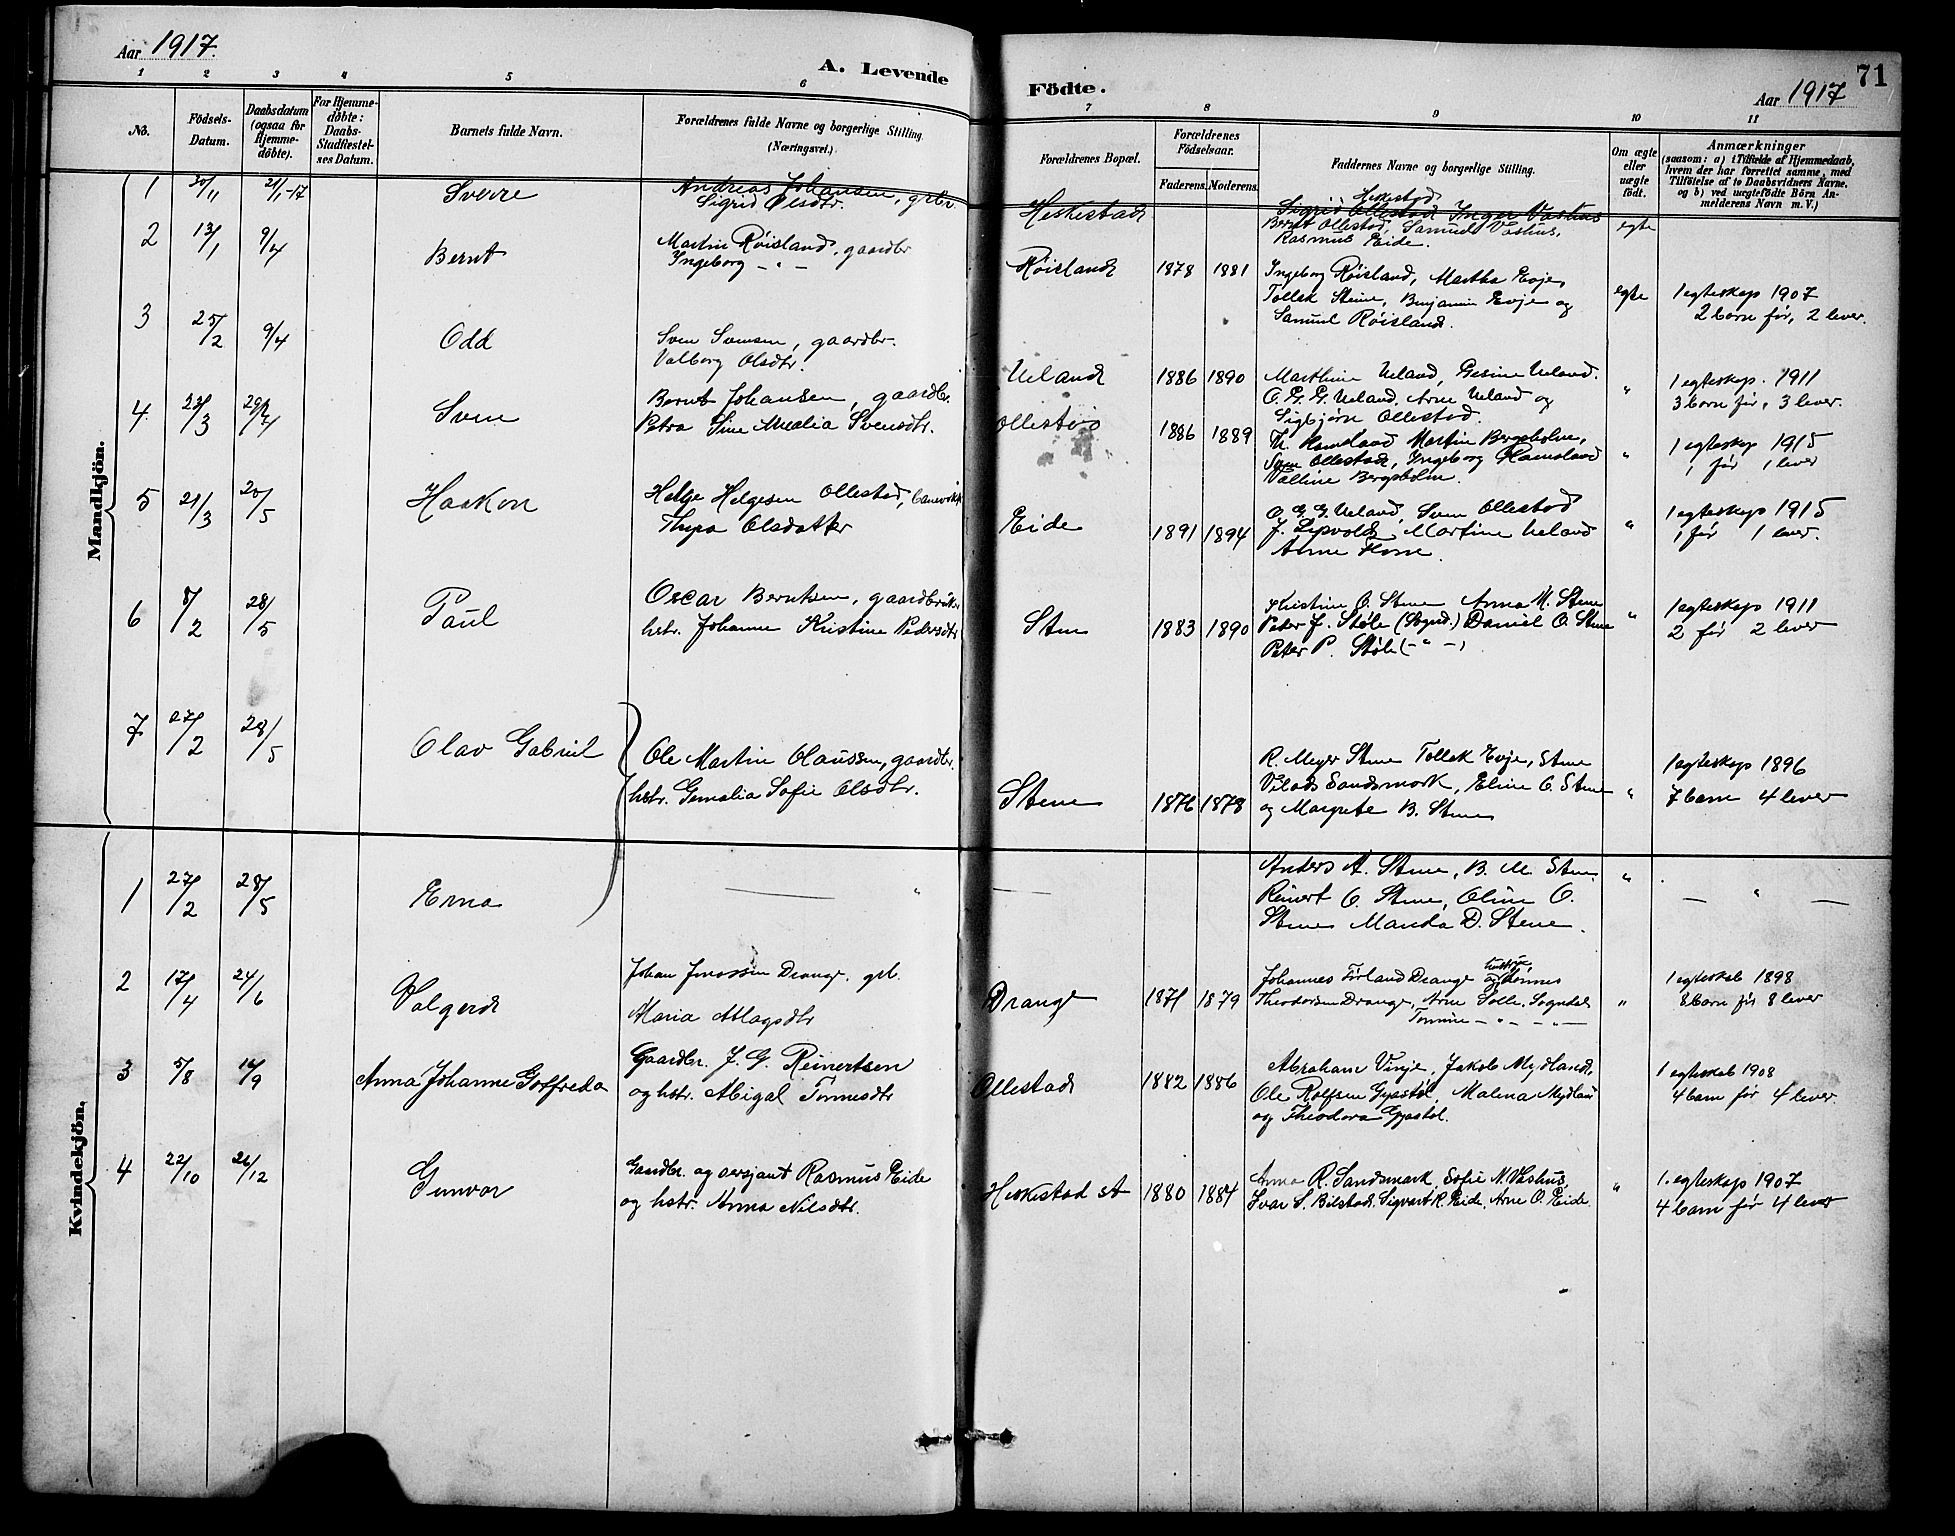 Aar 1917.
A. Levende
Födte.
71
Aar 1917
1 2 3 4 5 6
7 8 9 10 11
No.
Födsels-
Datum.
Daabsdatum
(ogsaa for
Hjemme-
døbte).
For Hjemme-
døbte:
Daabs-
Stadfæstel-
ses Datum.
Barnets fulde Navn.
Forældrenes fulde Navne og borgerlige Stilling.
(Næringsvei.)
Forældrenes Bopæl.
Forældrenes
Födselsaar.
Faderens. Moderens.
Faddernes Navne og borgerlige Stilling.
Om ægte
eller
uægte
født.
Anmærkninger
(saasom: a) i Tilfælde af Hjemmedaab,
hvem der har forrettet samme, med
Tilföielse af to Daabsvidners Navne.
og b) ved uægtefödte Börn An-
melderens Navn m. V.)
Mandkjön.
1 30/11 21/1-17 Sverre
Andreas Johansen, grbr.
Sigrid Olsdtr.
Heskestad
Heskestad
Sigrid Ollestad Inger Vashus
Bernt Ollestad, Samuel Vashus,
Rasmus Eide.
egte
2 13/1 9/4 Bernt
Martin Röisland, gaardbr
Ingeborg - " -
Röisland 1878 1881
Ingeborg Röisland, Martha Evje,
Tollak Steine, Benjamin Evje og
Samuel Röisland.
egte
1 egteskap 1907
2 barn før, 2 lever.
3 25/2 9/4 Odd
Sven Svensen, gaardbr.
Valborg Olsdtr.
Ueland 1886 1890
Marthine Ueland, Gesine Ueland.
O. G. G. Ueland, Arne Ueland og
Sigbjørn Ollestad.
"
1 egteskap. 1911
3 barn før, 3 lever.
4. 23/3 29/4 Sven
Bernt Johansen, gaardbr.
Petra Sine Amalia Svensdtr.
Ollestad 1886 1889
Th. Hameland Martin Bergsholm,
Sven Ollestad, Ingeborg Hameland
Valline Bergsholm.
"
1 egteskap 1915
1 før 1 lever
5 21/3 20/5 Haakon
Helge Helgesen Ollestad,
Thyra Olsdatter
Eide 1891 1894
O. G. G. Ueland, Sven Ollestad
J. Martine Ueland
Anne
"
1 egteskap 1915
1 før 1 lever.
6 8/2 28/5 Paul
Oscar Berntsen, gaardbruker
hstr. Johanne Kristine Pedersdtr
Stene 1883 1890
Kristine O. Stene Anna M. Stene
Peter J. Støle (Sognd.) Daniel O. Stene
Peter P. Støle (- " -)
"
1 egteskap 1911
2 før 2 lever
7 27/2 28/5 Olav Gabriel
Ole Martin Olaussen, gaardbr.
hstr. Gemalia Sofie Olsdtr.
Stene 1876 1878
R. Meyer Stene Tollak Evje, Stene
Sandsmork, Eline O. Stene
og Margrete B. Stene
"
1 egteskap 1896
7 barn 4 lever
Kvindekjön.
1 27/2 28/5 Erna
— " —
Anders A. Stene, B. M. Stene
Reinert O. Stene, Oline O.
Stene Manda D. Stene.
"
— " —
2 17/4 24/6 Valgerd
Johan Jonassen Drange. grb.
Maria Atlagsdtr
Drange 1871 1879
Johannes Förland Drange og hustru, Tönnes
Theodorsen Drange, Arne Solli, Sogndal
Tomine - " - - " -
"
1 egteskab 1898
8 barn før 8 lever
3 5/8 16/9 Anna Johanne Goffreda
Gaardbr. J. G. Reinertsen
og hstr. Abigal Tönnesdtr
Ollestad 1882 1886
Abraham Vinje, Jakob Mydland,
Ole Rolfsen Gyastöl, Malena Mydland
og Theodora Gyastöl.
1 egteskab 1908
4 barn før 4 lever.
4 22/10 26/12 Gunvor
Gardbr. og sersjant Rasmus Eide
og hstr. Anna Nilsdtr.
Heskestad st 1880 1884
Anna R. Sandsmark, Sofie N. Vashus,
Ivar S. Bilstad, Sigvart R. Eide, Arne O. Eide.
"
1. egteskap 1907
4 barn før 4 lever